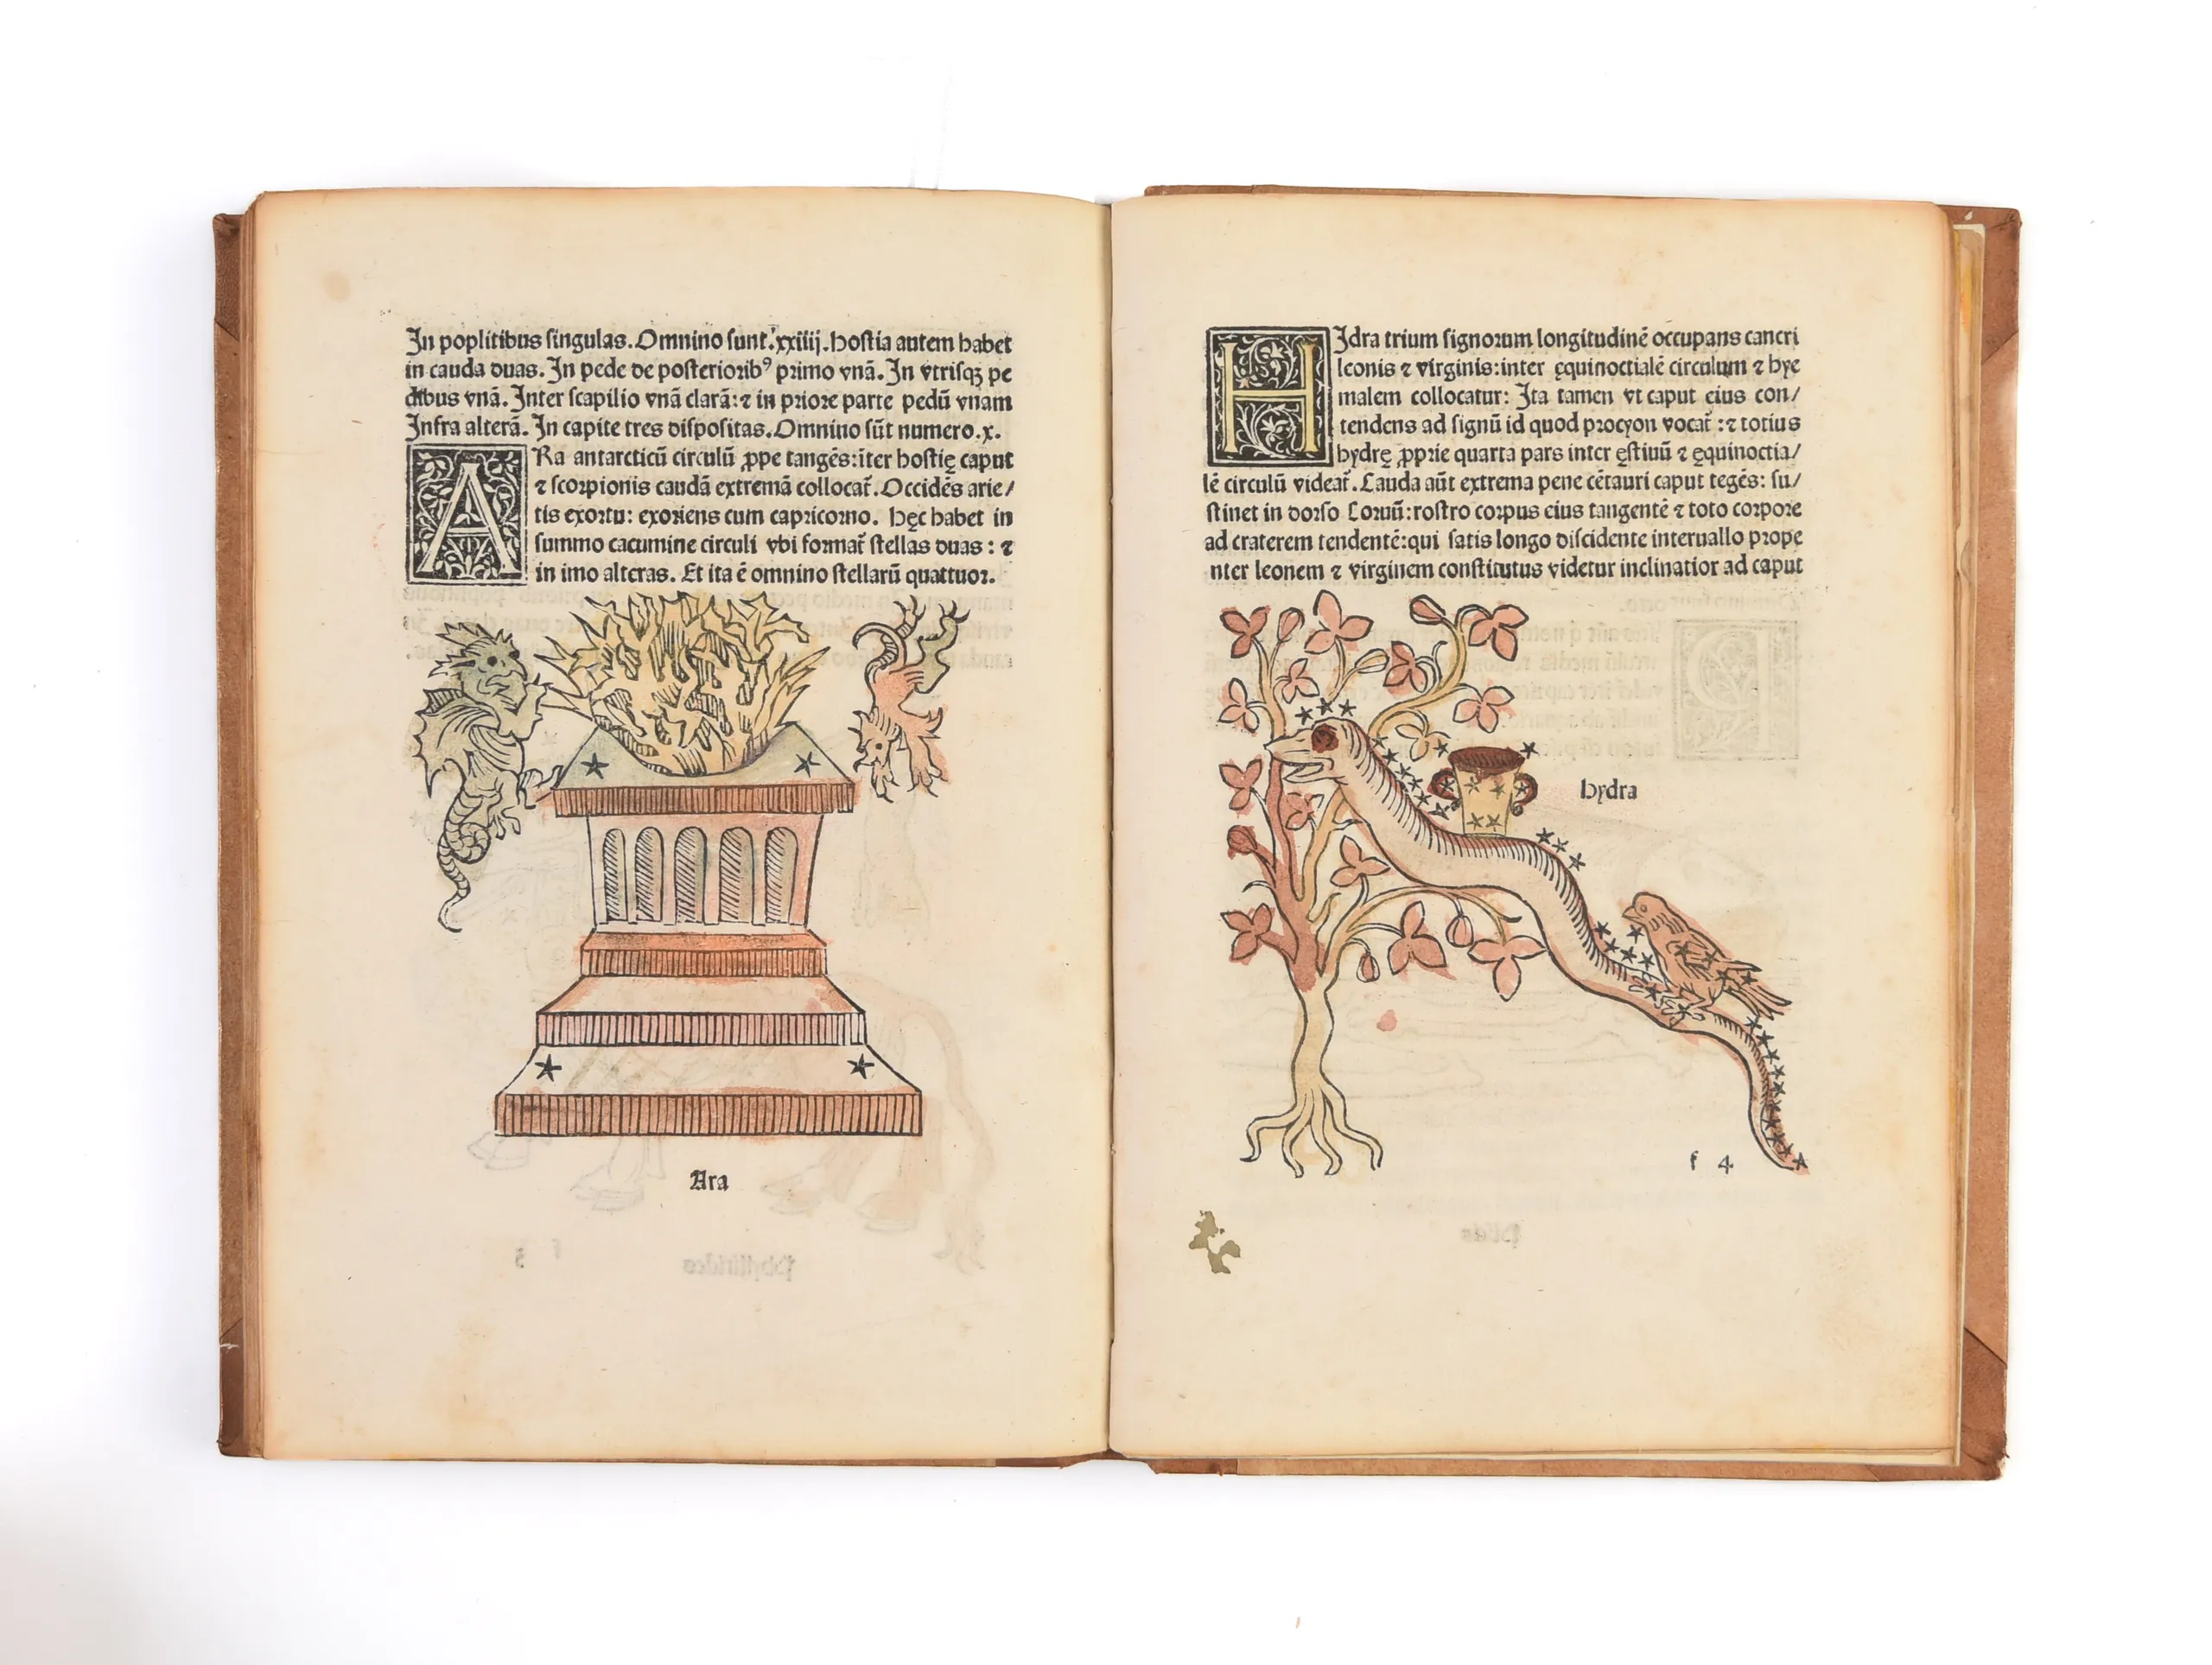 In poplitibus singulas. Omnino sunt.xxiiij. hostia autem habet
in cauda duas. In pede de posteriorib⁹ primo vnã. In vtrisqꝫ pe
dibus vnã. Inter scapilio vnã clarã: ⁊ in priore parte pedũ vnam
Infra alterã. In capite tres dispositas. Omnino sũt numero.x.
ARa antarcticũ circulũ ꝓpe tangẽs: ĩter hostię caput
⁊ scorpionis caudã extremã collocat̃. Occidẽs arie/
tis exortu: exoriens cum capricorno. hęc habet in
summo cacumine circuli vbi format̃ stellas duas: ⁊
in imo alteras. Et ita ẽ omnino stellarũ quattuor.
Ara
HIdra trium signorum longitudinẽ occupans cancri
leonis ⁊ virginis: inter ęquinoctialẽ circulum ⁊ hye
malem collocatur: Ita tamen vt caput eius con/
tendens ad signũ id quod procyon vocat̃: ⁊ totius
hydrę ꝓprie quarta pars inter ęstiuũ ⁊ ęquinoctia/
lẽ circulũ videat̃. Cauda aũt extrema pene cẽtauri caput tegẽs: su/
stinet in dorso Coruũ: rostro corpus eius tangentẽ ⁊ toto corpore
ad craterem tendentẽ: qui satis longo discidente interuallo prope
nter leonem ⁊ virginem constitutus videtur inclinatior ad caput
hydra
f 4